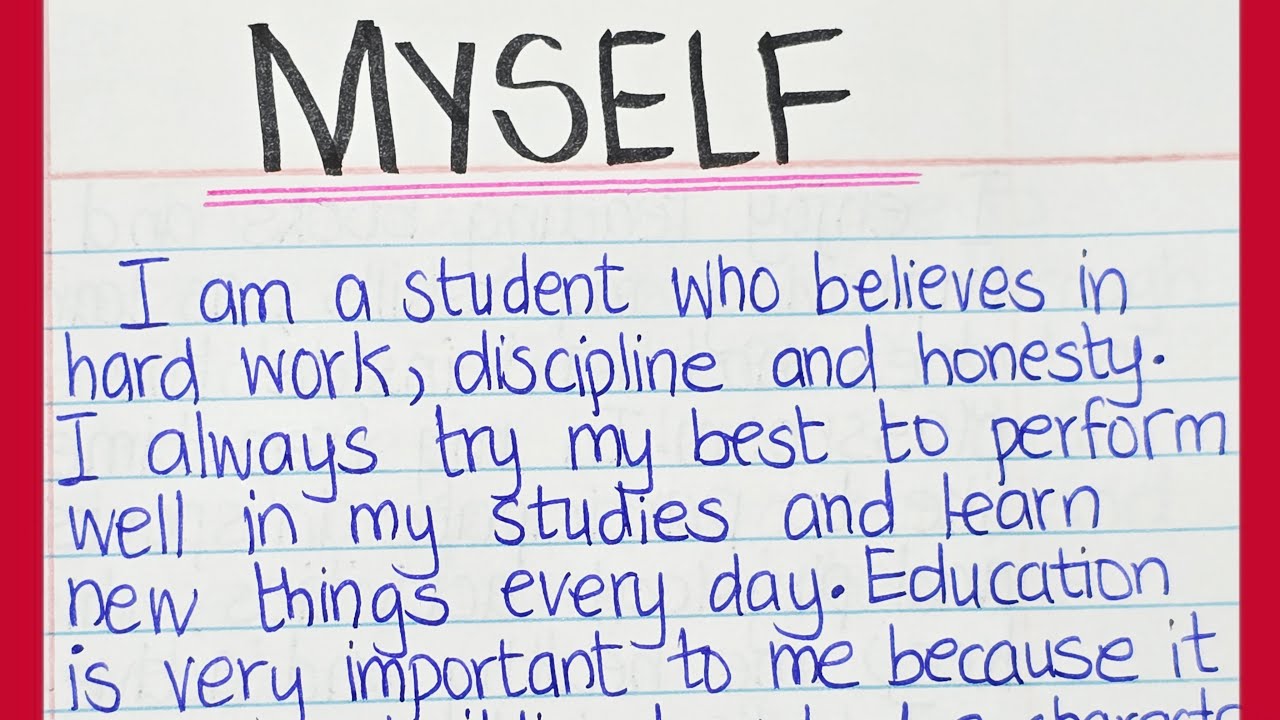 MYSELF
I am a student who believes in
hard work, discipline and honesty.
I always try my best to perform
well in my studies and learn
new things every day. Education
is very important to me because it